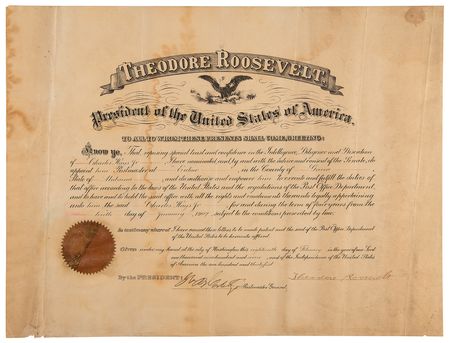 THEODORE ROOSEVELT,
President of the United States of America.
TO ALL TO WHOM THESE PRESENTS SHALL COME, GREETING:
Know ye, That, reposing special trust and confidence in the Intelligence, Diligence and Discretion
of Charles I have nominated, and by and with the advice and consent of the Senate, do
appoint him Postmaster at in the County of
State of and do authorize and empower him to execute and fulfil the duties of
that office according to the laws of the United States and the regulations of the Post Office Department,
and to have and to hold the said office with all the rights and emoluments thereunto legally appertaining
unto him the said Charles for and during the term of four years from the
tenth day of January 1907 subject to the conditions prescribed by law.
In testimony whereof I have caused these letters to be made patent and the seal of the Post Office Department
of the United States to be hereunto affixed.
Given under my hand at the city of Washington this eighteenth day of in the year of our Lord
one thousand nine hundred and and of the Independence of the United States
of America the one hundred and
By the PRESIDENT: Theodore Roosevelt
Postmaster General.